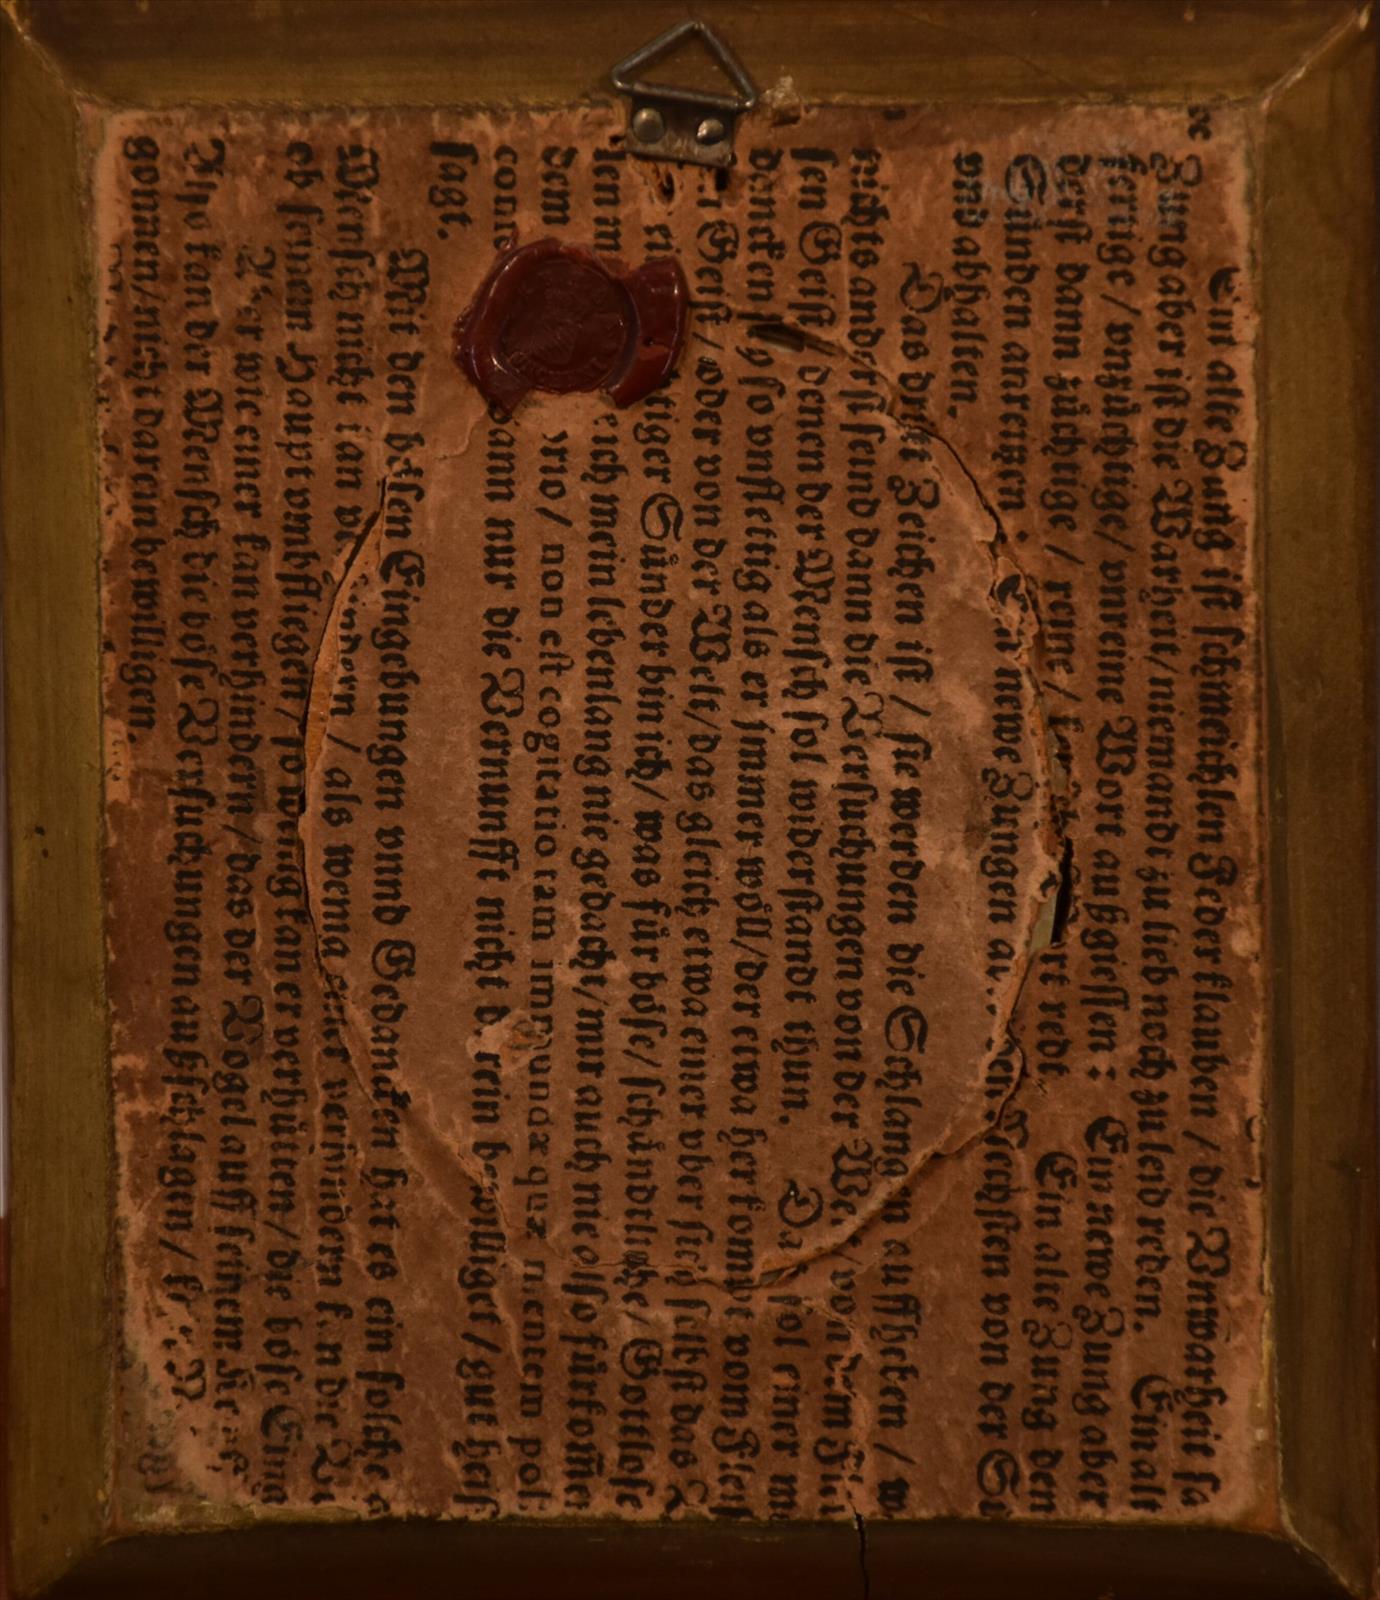 Ein alte Zung ist schmeichlen Federklauben / die Unwarheit sa
Zung aber ist die Warheit / niemandt zu lieb noch zu leid reden. Ein alt
fertige / vnzüchtige / vnreine Wort außgiessen : Ein newe Zung aber
dann züchtige / reine / redt Ein alte Zung den
Sünden anreitzen . newe Zungen den Nechsten von der Sü
vnd abhalten.
Das dritt Zeichen ist / sie werden die Schlangen auffheben / w
nichts anderst seind dann die Versuchungen von der / von dem
sen Geist / denen der Mensch sol widerstandt thun. Da sol einer me
dancken so vnflettig als er jmmer wöll / der etwa herkombt vom Fleis
Geist / oder von der Welt / das gleich etwa einer vber sich selbst das L
tiger Sünder bin ich / was für böse / schändtliche / Gottlose
sen ich mein lebenlang nie gedacht / mir auch nie also fürkomen
dem rio / non est cogitatio tam immunda quæ mentem pol
con dann nur die Vernunfft nicht drein bewilliget / gut heis
sagt.
Mit den bösen Eingebungen vnnd Gedancken hat es ein solche
Mensch nicht kan / als wenig einer verhindern kan die
ob seinem Haupt vmbfliegen / so wenig kan er verhüten / die böse Eing
Aber wie einer kan verhindern / das der Vogel auff seinem
Also kan der Mensch die böse Versuchungen außschlagen /
gonnen / nicht darein bewilligen.